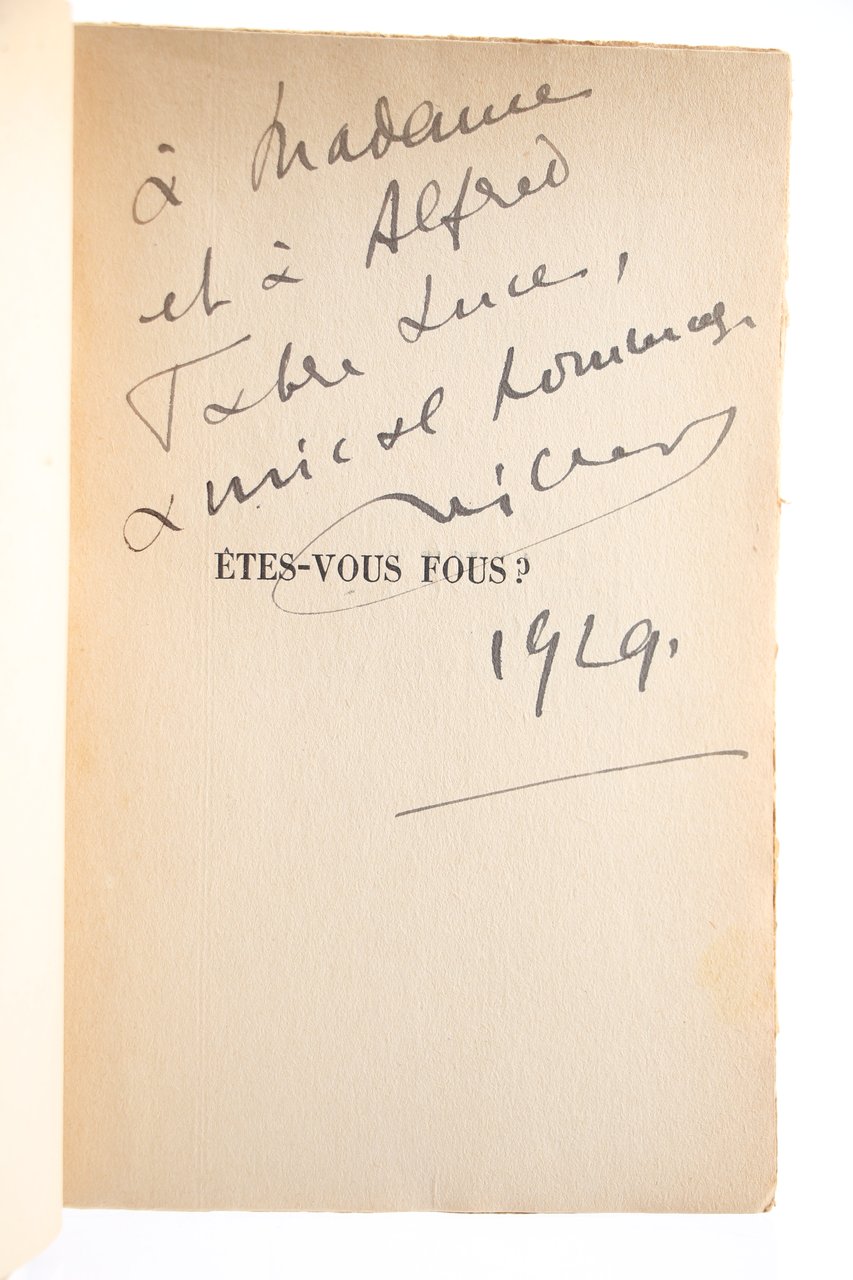 à Madame
et à Alfred
Fabre Luce,
amical hommage
ÊTES-VOUS FOUS ?
1929.